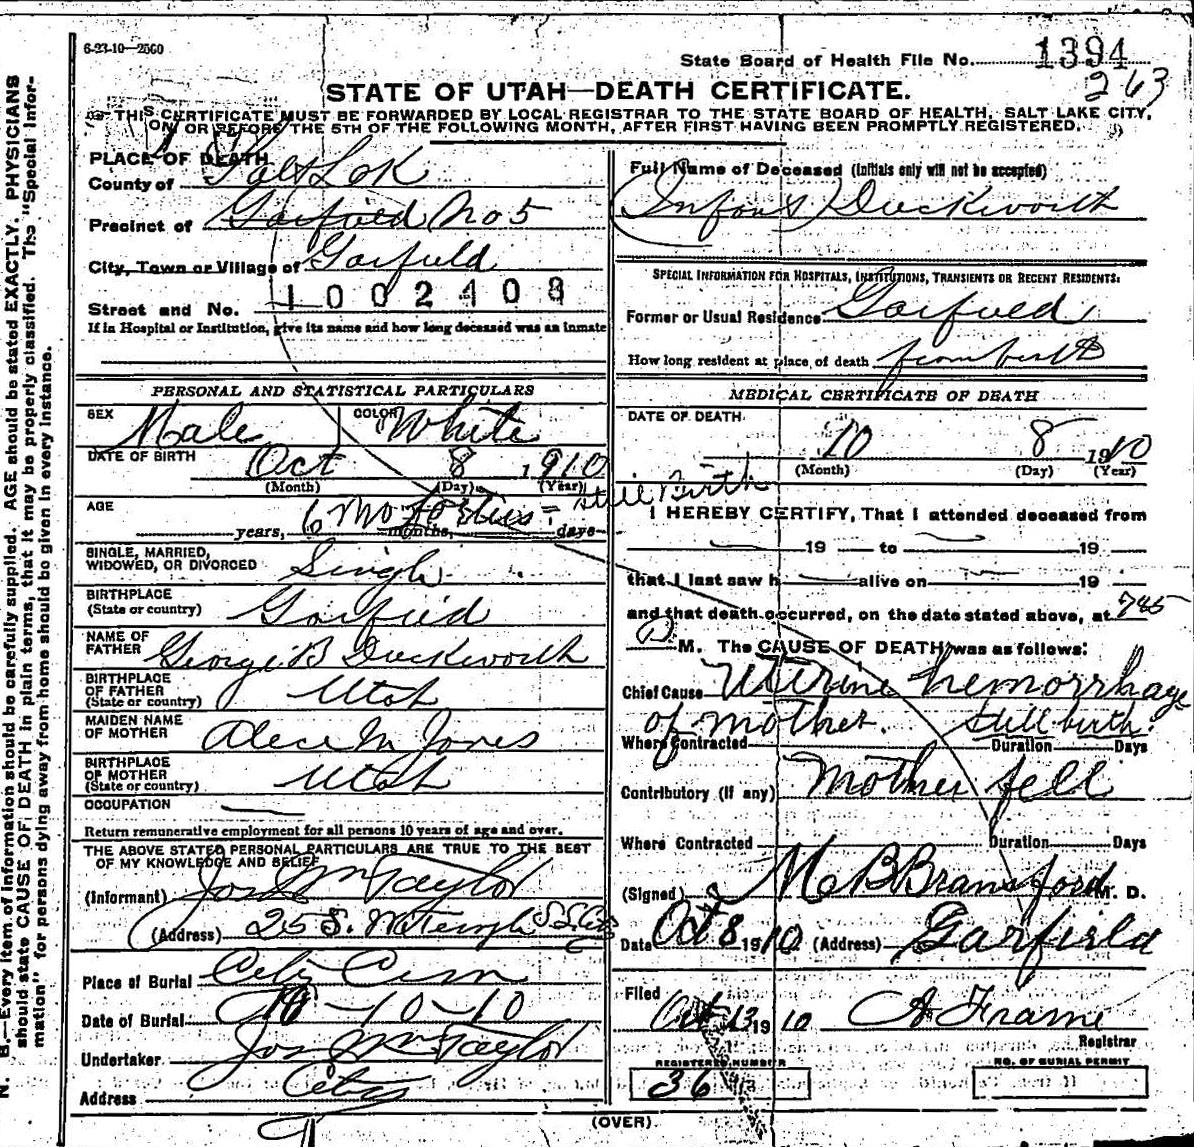 6-23-10—2560
State Board of Health File No. 1394
263
STATE OF UTAH—DEATH CERTIFICATE.
THIS CERTIFICATE MUST BE FORWARDED BY LOCAL REGISTRAR TO THE STATE BOARD OF HEALTH, SALT LAKE CITY,
ON OR BEFORE THE 5TH OF THE FOLLOWING MONTH, AFTER FIRST HAVING BEEN PROMPTLY REGISTERED.
PLACE OF DEATH
County of Salt Lak
Precinct of Garfield No 5
City, Town or Village of Garfield
Street and No. 1002408
If in Hospital or Institution, give its name and how long deceased was an inmate
Full Name of Deceased (Initials only will not be accepted)
(Infant) Duckworth
SPECIAL INFORMATION FOR HOSPITALS, INSTITUTIONS, TRANSIENTS OR RECENT RESIDENTS:
Former or Usual Residence Garfield
How long resident at place of death from birth
PERSONAL AND STATISTICAL PARTICULARS
SEX Male COLOR White
DATE OF BIRTH Oct 8 1910
(Month) (Day) (Year)
AGE 6 Mo Foetus = Still Birth
years, months, days
SINGLE, MARRIED,
WIDOWED, OR DIVORCED Single
BIRTHPLACE
(State or country) Garfield
NAME OF
FATHER George B Duckworth
BIRTHPLACE
OF FATHER
(State or country) Utah
MAIDEN NAME
OF MOTHER Alece M Jones
BIRTHPLACE
OF MOTHER
(State or country) Utah
OCCUPATION
Return remunerative employment for all persons 10 years of age and over.
THE ABOVE STATED PERSONAL PARTICULARS ARE TRUE TO THE BEST
OF MY KNOWLEDGE AND BELIEF
(Informant) Jos Wm Taylor
(Address) 25 S. W Temple S L City
Place of Burial City Cem
Date of Burial 10-10-10
Undertaker Jos Wm Taylor
Address City
MEDICAL CERTIFICATE OF DEATH
DATE OF DEATH
10 8 1910
(Month) (Day) (Year)
I HEREBY CERTIFY, That I attended deceased from
19 to 19
that I last saw h alive on 19
and that death occurred, on the date stated above, at 745
P M. The CAUSE OF DEATH was as follows:
Chief Cause Uterine hemorrhage
of mother. Still birth.
Where Contracted Duration Days
Contributory (if any) Mother fell
Where Contracted Duration Days
(Signed) M B Bransford M. D.
Date Oct 8 1910 (Address) Garfield
Filed
Oct 13 1910 A Frame
Registrar
REGISTERED NUMBER
36
NO. OF BURIAL PERMIT
(OVER)
N. B.—Every item of information should be carefully supplied. AGE should be stated EXACTLY. PHYSICIANS
should state CAUSE OF DEATH in plain terms, that it may be properly classified. The "Special Infor-
mation" for persons dying away from home should be given in every instance.